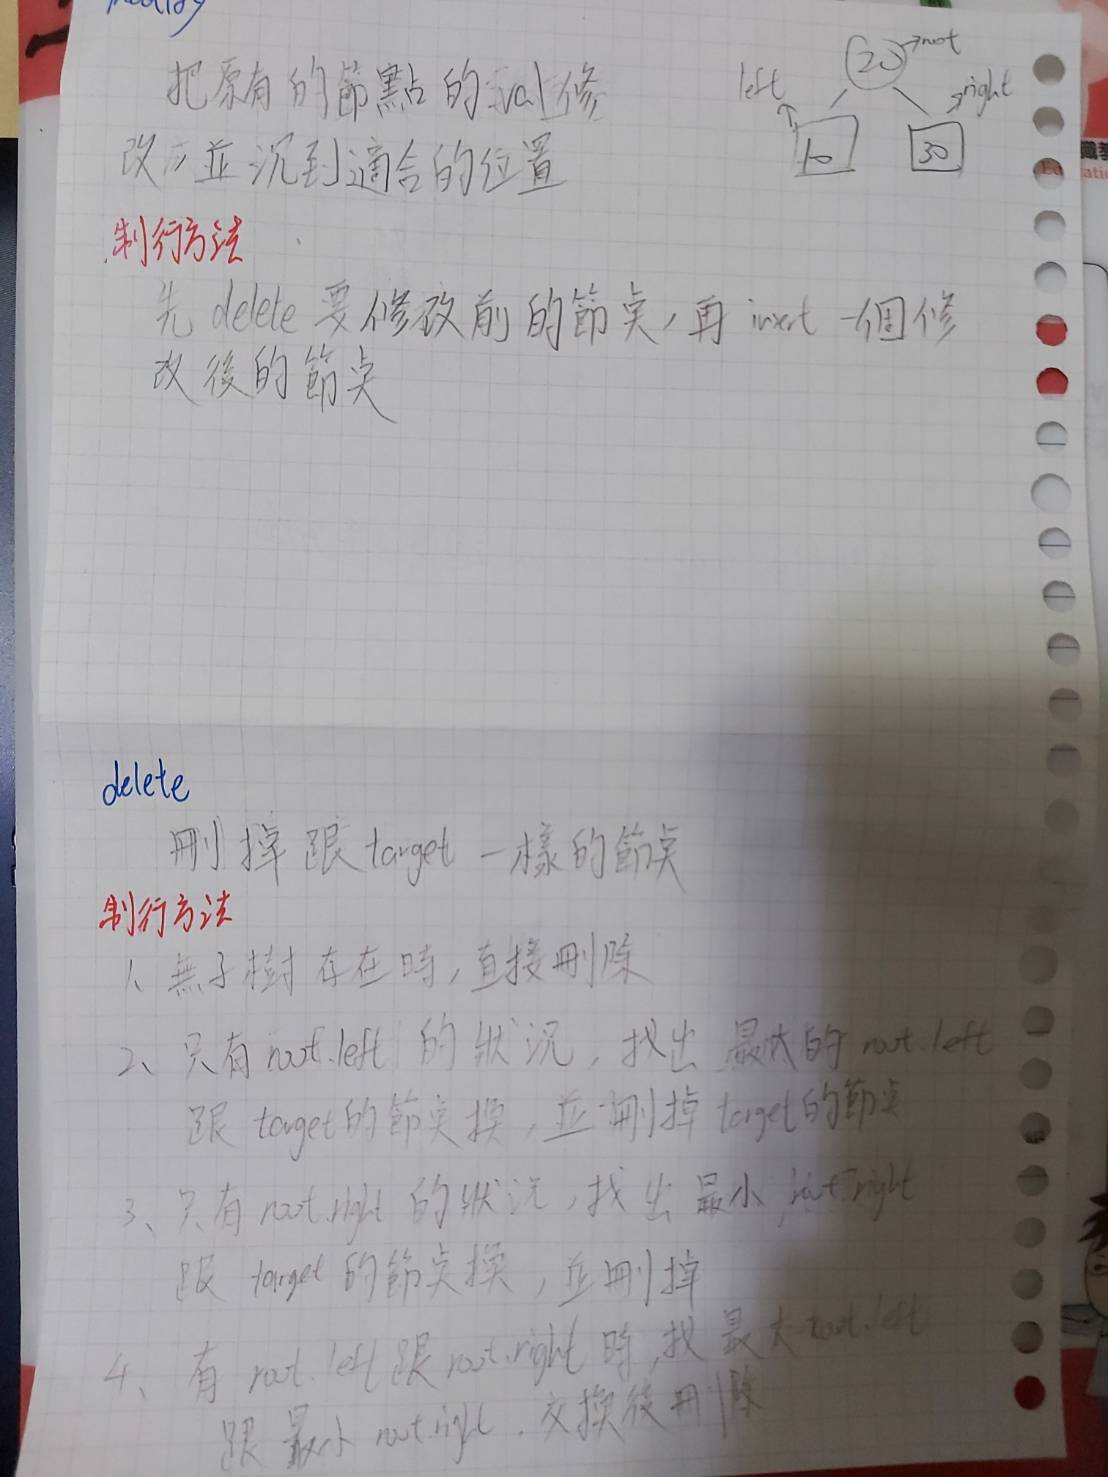 modify
把原有的節點的val修
改,並沉到適合的位置
20 → root
left
right
10
30
制行方法
先 delete 要修改前的節点,再 insert 一個修
改後的節点
delete
刪掉跟 target 一樣的節点
制行方法
1、無子樹存在時,直接刪除
2、只有 root.left 的狀況,找出最大的 root.left
跟 target 的節点換,並刪掉 target 的節点
3、只有 root.right 的狀況,找出最小 root.right
跟 target 的節点換,並刪掉
4、有 root.left 跟 root.right 時,找最大 root.left
跟最小 root.right,交換後刪除